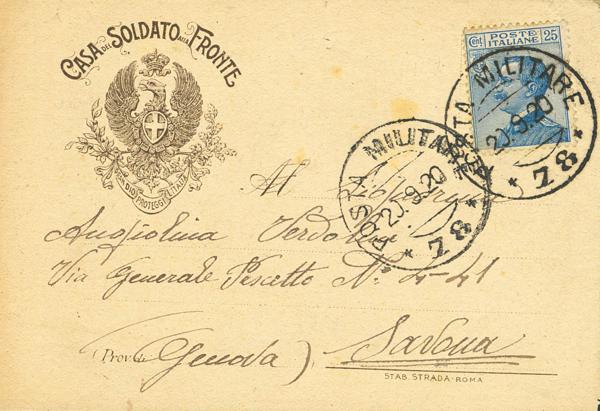 CASA DEL SOLDATO ALLA FRONTE
Cent. POSTE ITALIANE 25
POSTA MILITARE
20.9.20
* 78 *
POSTA MILITARE
20.9.20
* 78 *
DIO PROTEGGI L'ITALIA
Al
Angiolina Verdolini
Via Generale Pescetto N. 4-41
(Prov. di Genova) Savona
STAB. STRADA - ROMA